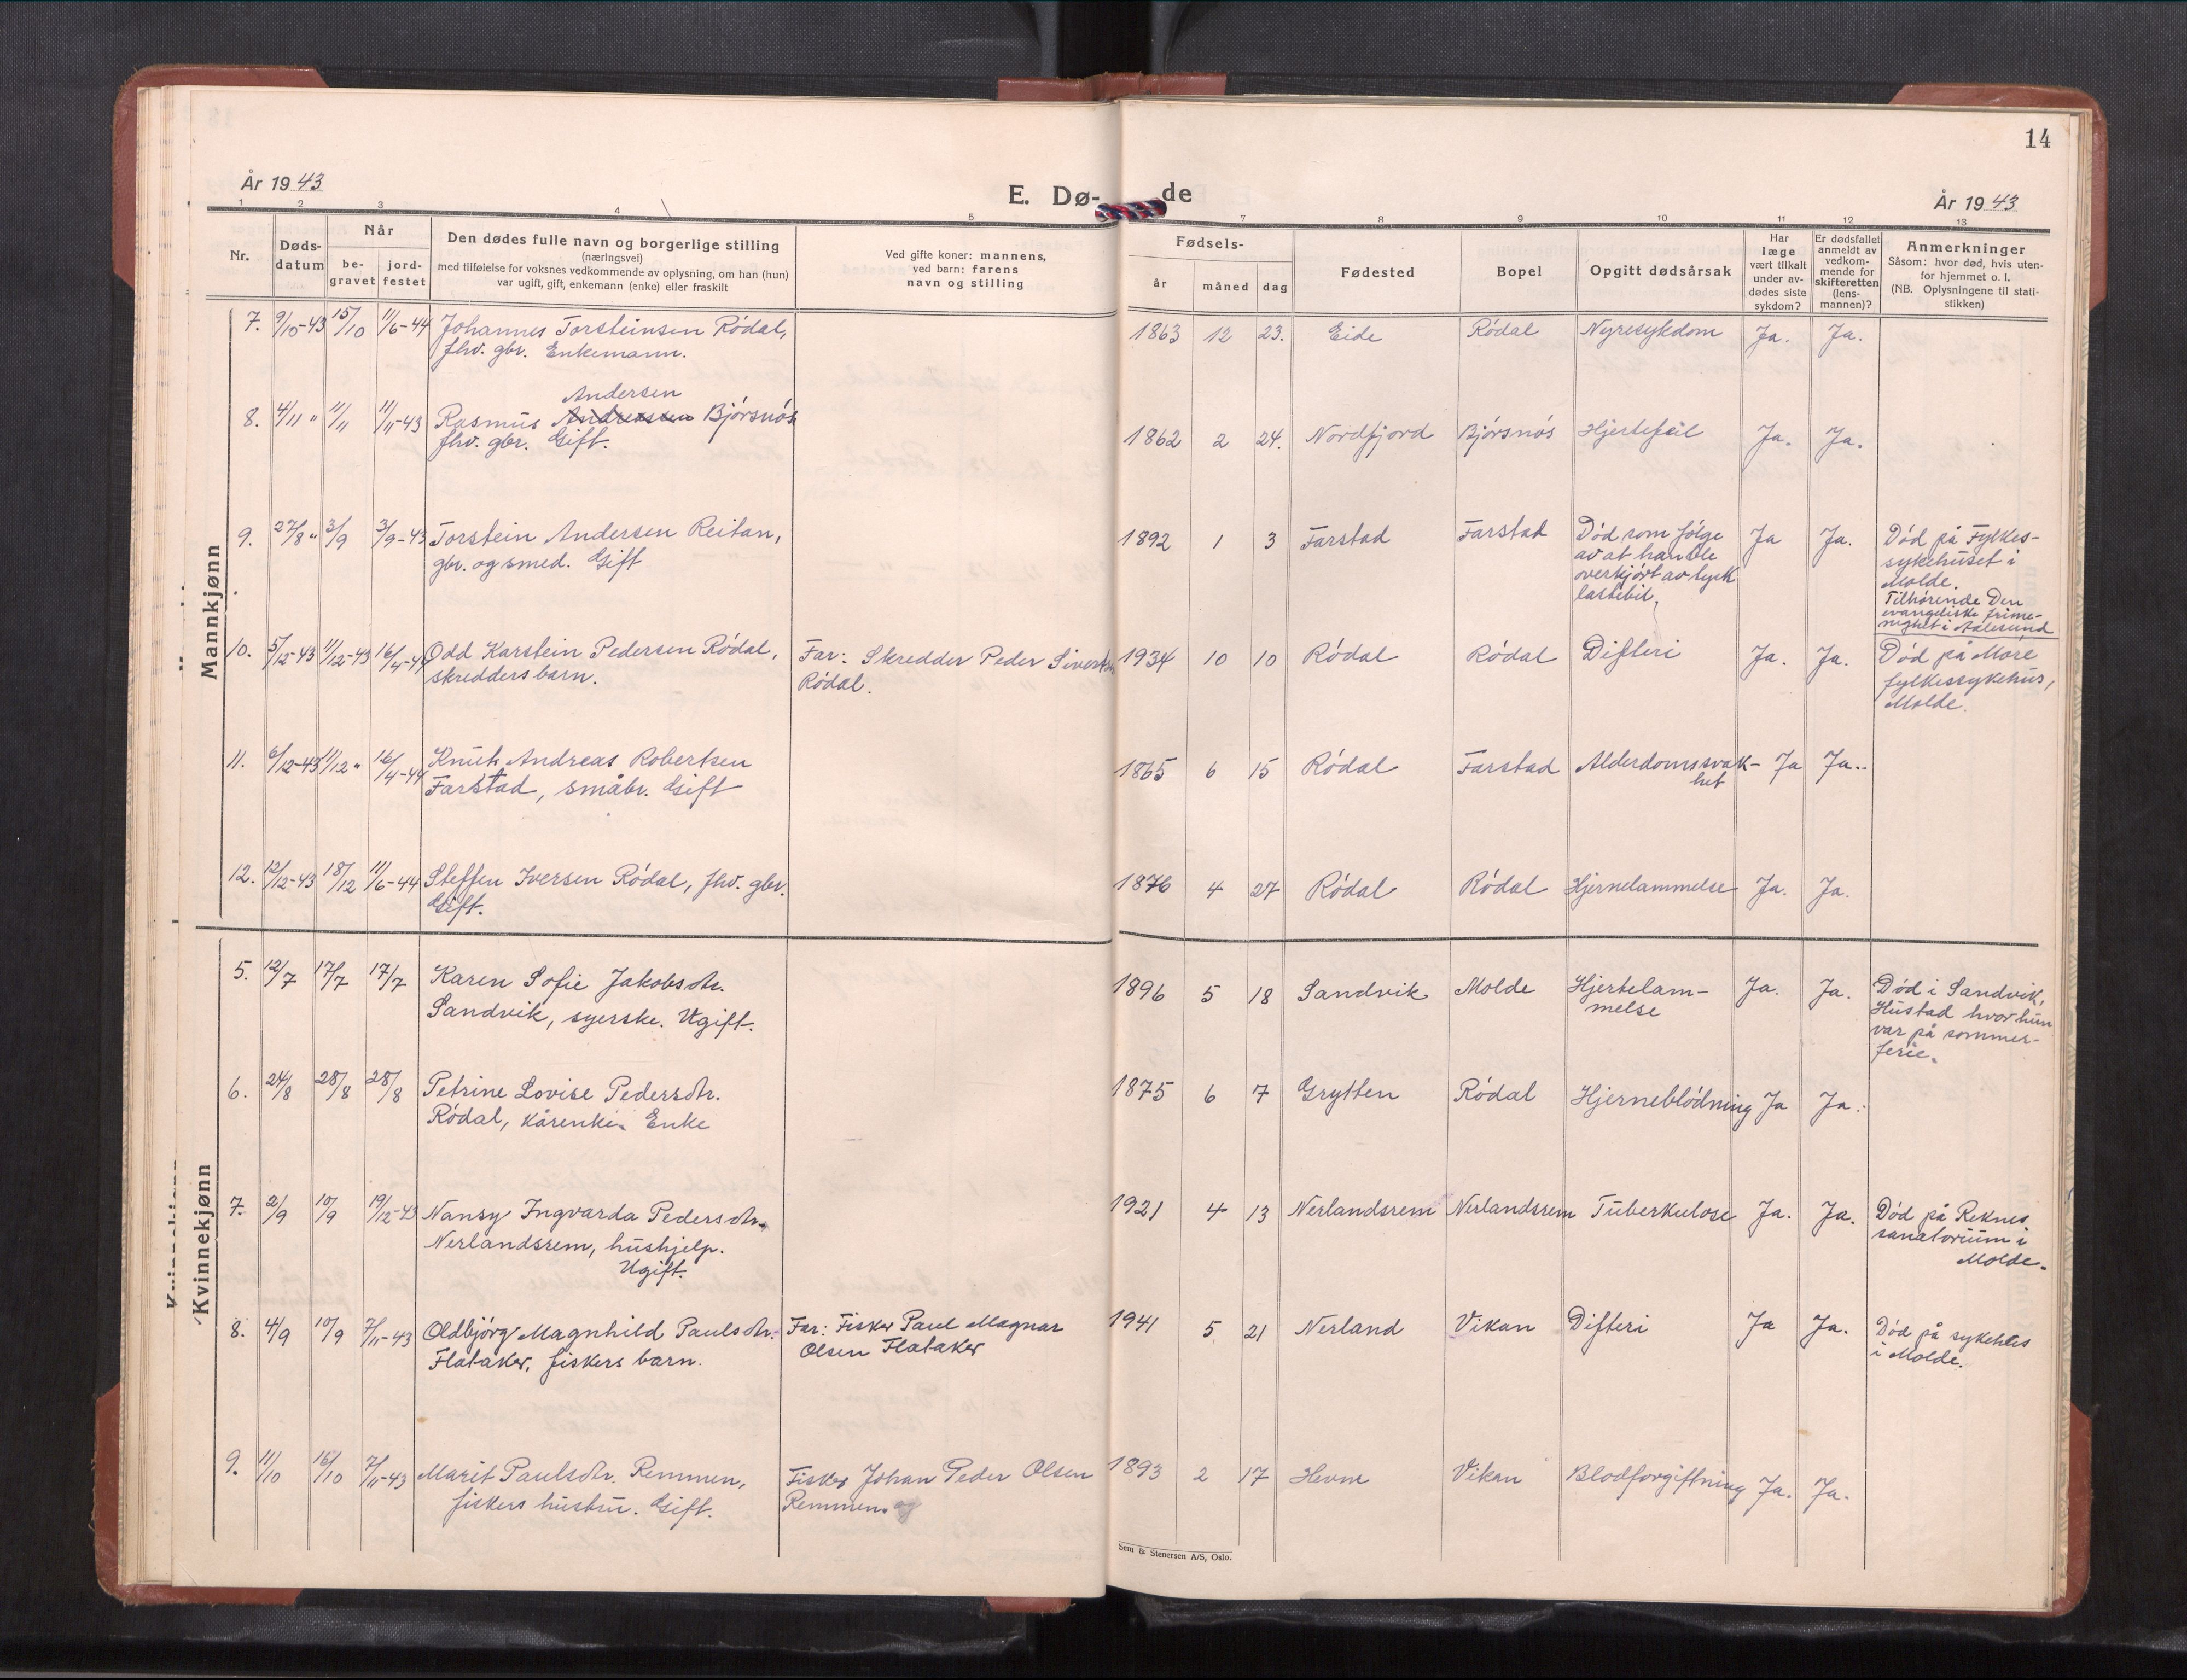 14
År 1943
E. Dø-
de
År 1943
1 2 3 4 5 7 8 9 10 11 12 13
Nr.
Døds-
datum
Når
be-
gravet
jord-
festet
Den dødes fulle navn og borgerlige stilling
(næringsvei)
med tilføielse for voksnes vedkommende av oplysning, om han (hun)
var ugift, gift, enkemann (enke) eller fraskilt
Ved gifte koner: mannens,
ved barn: farens
navn og stilling
Fødsels-
år måned dag
Fødested
Bopel
Opgitt dødsårsak
Har
læge
vært tilkalt
under av-
dødes siste
sykdom?
Er dødsfallet
anmeldt av
vedkom-
mende for
skifteretten
(lens-
mannen)?
Anmerkninger
Såsom: hvor død, hvis uten-
for hjemmet o. l.
(NB. Oplysningene til stati-
stikken)
Mannkjønn
7. 9/10-43 15/10 11/6-44 Johannes Torsteinsen Rödal, 1863 12 23. Eide Rödal Nyresykdom Ja. Ja.
fhv. gbr. Enkemann.
Andersen
8. 4/11 " 11/11 11/11-43 Rasmus Andreassen Björsnös 1862 2 24. Nordfjord Björsnös Hjertefeil Ja. Ja.
fhv. gbr. Gift.
9. 27/8 " 3/9 3/9-43 Torstein Andersen Reitan, 1892 1 3 Farstad Farstad Död som fölge Ja Ja. Död på Fylkes-
gbr. og smed. Gift av at han ble sykehuset i
overkjört av tysk Molde.
lastebil. Tilhörende Den
evangeliske frime-
nighet i Aalesund
10. 5/12-43 11/12-43 16/4-44 Odd Karstein Pedersen Rödal, Far: Skredder Peder Sivertsen 1934 10 10 Rödal Rödal Difteri Ja. Ja. Död på Möre
skreddersbarn. Rödal. fylkessykehus,
Molde.
11. 6/12-43 11/12 " 16/4-44 Knut Andreas Robertsen 1865 6 15 Rödal Farstad Alderdomssvak- Ja Ja.
Farstad, småbr. Gift het
12. 12/12-43 18/12 11/6-44 Steffen Iversen Rödal, fhv. gbr. 1876 4 27 Rödal Rödal Hjernelammelse Ja. Ja.
Gift.
Kvinnekjønn
5. 12/7 17/7 17/7 Karen Sofie Jakobsdtr. 1896 5 18 Sandvik Molde Hjertelam- Ja. Ja. Död i Sandvik,
Sandvik, syerske. Ugift. melse Hustad hvor hun
var på sommer-
ferie.
6. 24/8 28/8 28/8 Petrine Lovise Pedersdtr. 1875 6 7 Grytten Rödal Hjerneblödning Ja Ja.
Rödal, kårenke. Enke
7. 2/9 10/9 19/12-43 Nansy Ingvarda Pedersdtr. 1921 4 13 Nerlandsrem Nerlandsrem Tuberkulose Ja. Ja. Död på Reknes
Nerlandsrem, hushjelp. sanatorium i
Ugift. Molde.
8. 4/9 10/9 7/11-43 Oldbjörg Magnhild Paulsdtr. Far: Fisker Paul Magnar 1941 5 21 Nerland Vikan Difteri Ja Ja. Död på sykehus
Flataker, fiskers barn. Olsen Flataker i Molde.
9. 11/10 16/10 7/11-43 Marit Paulsdtr. Remmen, Fisker Johan Peder Olsen 1893 2 17 Hevne Vikan Blodforgiftning Ja. Ja.
fiskers hustru. Gift. Remmen
Sem & Stenersen A/S, Oslo.